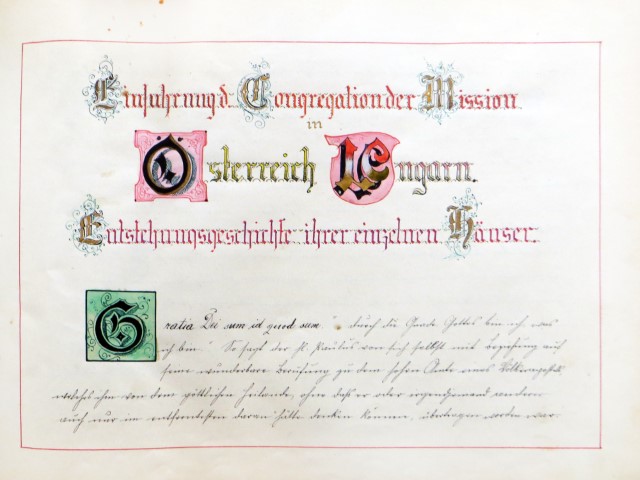 Einfuhrung d. Congregation der Mission
in
Österreich Ungarn.
Entstehungsgeschichte ihrer einzelnen Häuser.
Gratia Dei sum id quod sum" „durch die Gnade Gottes bin ich, was
ich bin." So sagt der hl. Paulus von sich selbst mit Beziehung auf
seine wunderbare Berufung zu dem hohen Amte eines Völkerapostels
welches ihm von dem göttlichen Heilande, ohne daß er oder irgendjemand anderer
auch nur im entferntesten daran hätte denken können, übertragen worden war.